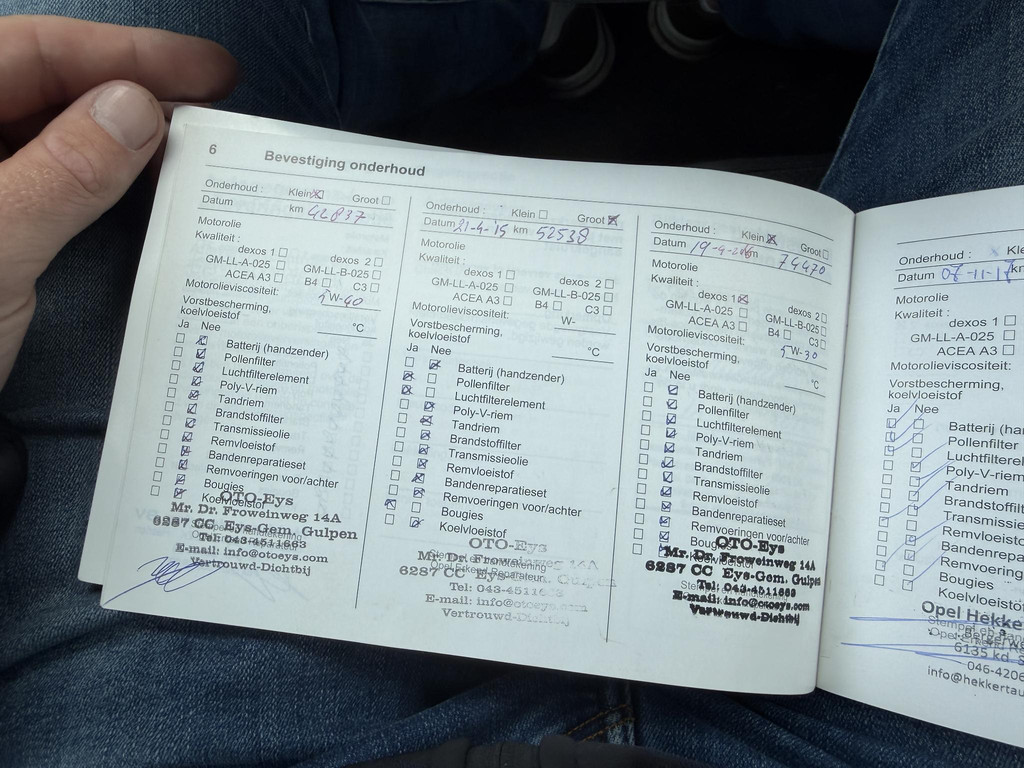 6 Bevestiging onderhoud
Onderhoud : Klein Groot
Datum km 42837
Motorolie
Kwaliteit :
dexos 1 dexos 2
GM-LL-A-025 GM-LL-B-025
ACEA A3 B4 C3
Motorolieviscositeit: 5W-40
Vorstbescherming,
koelvloeistof °C
Ja Nee
Batterij (handzender)
Pollenfilter
Luchtfilterelement
Poly-V-riem
Tandriem
Brandstoffilter
Transmissieolie
Remvloeistof
Bandenreparatieset
Remvoeringen voor/achter
Bougies
Koelvloeistof
OTO-Eys
Mr. Dr. Froweinweg 14A
6287 CC Eys-Gem. Gulpen
Tel: 043-4511663
E-mail: info@otoeys.com
Vertrouwd-Dichtbij
Onderhoud : Klein Groot
Datum 21-4-15 km 52538
Motorolie
Kwaliteit :
dexos 1 dexos 2
GM-LL-A-025 GM-LL-B-025
ACEA A3 B4 C3
Motorolieviscositeit: W-
Vorstbescherming,
koelvloeistof °C
Ja Nee
Batterij (handzender)
Pollenfilter
Luchtfilterelement
Poly-V-riem
Tandriem
Brandstoffilter
Transmissieolie
Remvloeistof
Bandenreparatieset
Remvoeringen voor/achter
Bougies
Koelvloeistof
OTO-Eys
Mr. Dr. Froweinweg 14A
6287 CC Eys-Gem. Gulpen
Opel Erkend Reparateur
Tel: 043-4511663
E-mail: info@otoeys.com
Vertrouwd-Dichtbij
Onderhoud : Klein Groot
Datum 19-4- km 74470
Motorolie
Kwaliteit :
dexos 1 dexos 2
GM-LL-A-025 GM-LL-B-025
ACEA A3 B4 C3
Motorolieviscositeit: 5W-30
Vorstbescherming,
koelvloeistof °C
Ja Nee
Batterij (handzender)
Pollenfilter
Luchtfilterelement
Poly-V-riem
Tandriem
Brandstoffilter
Transmissieolie
Remvloeistof
Bandenreparatieset
Remvoeringen voor/achter
Bougies
OTO-Eys
Mr. Dr. Froweinweg 14A
6287 CC Eys-Gem. Gulpen
Tel: 043-4511663
E-mail: info@otoeys.com
Vertrouwd-Dichtbij
Onderhoud : Kle
Datum km
Motorolie
Kwaliteit :
dexos 1
GM-LL-A-025
ACEA A3
Motorolieviscositeit:
Vorstbescherming,
koelvloeistof
Ja Nee
Batterij (han
Pollenfilter
Luchtfilterelem
Poly-V-riem
Tandriem
Brandstoffil
Transmissie
Remvloeisto
Bandenrepa
Remvoering
Bougies
Koelvloeisto
Opel Hekke
6135 kd
046-4206
info@hekkertau